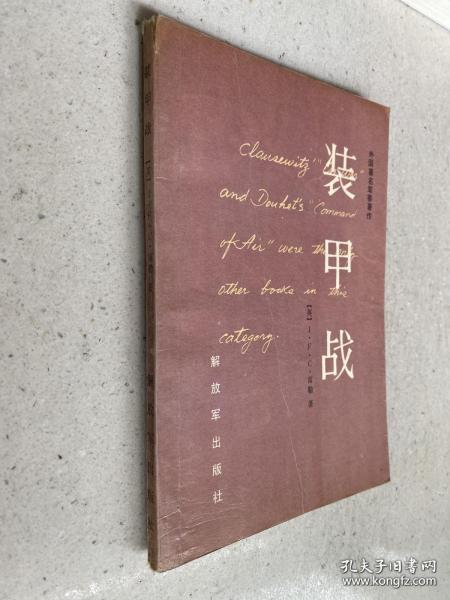 外国著名军事著作
装甲战
[英] J·F·C·富勒 著
Clausewitz'
and Douhet's "Command
of Air" were the only
other books in this
category.
解放军出版社
装甲战
孔夫子旧书网
www.kongfz.com